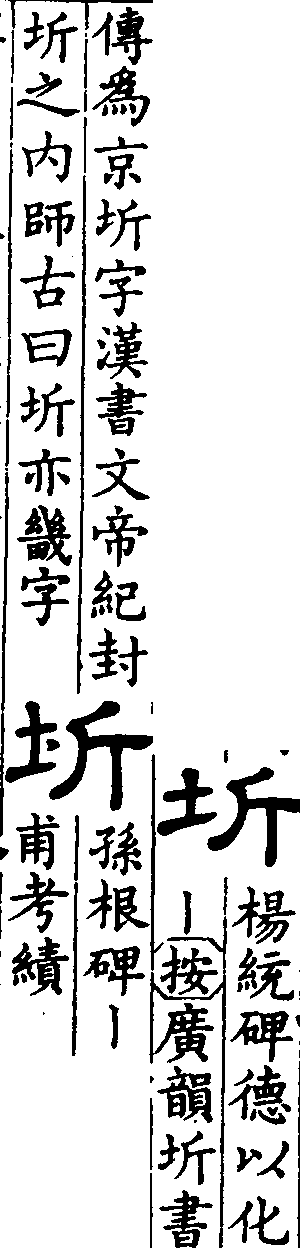 圻
楊統碑德以化
丨按廣韻圻書
傳爲京圻字漢書文帝紀封
圻之内師古曰圻亦畿字
圻
孫根碑丨
甫考績